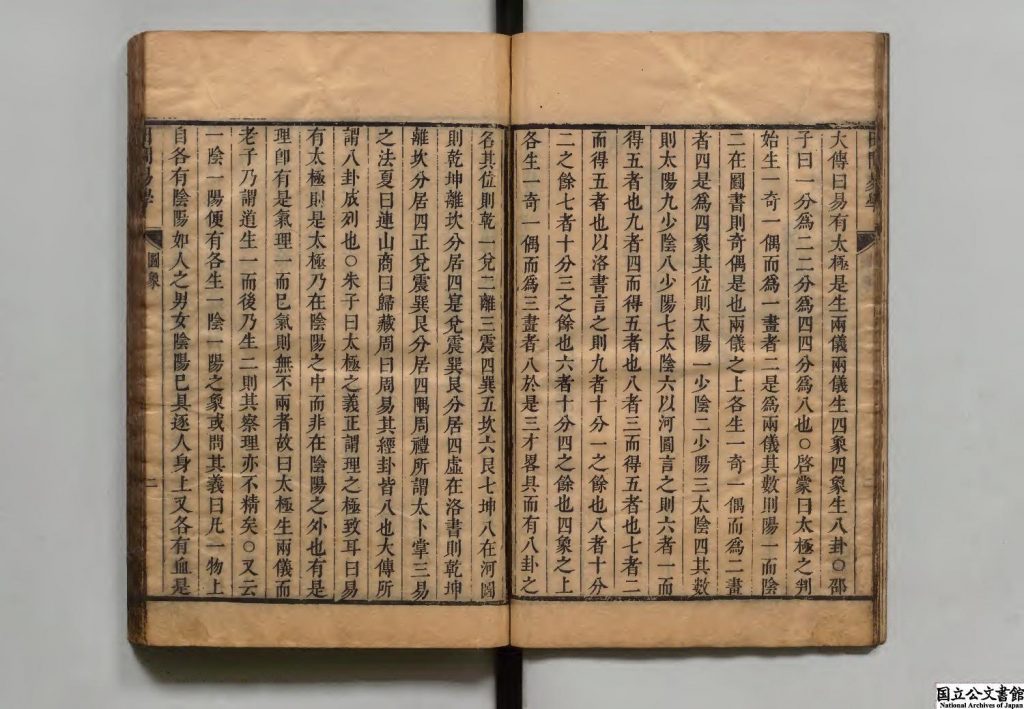 大傳曰易有太極是生兩儀兩儀生四象四象生八卦○邵
子曰一分爲二二分爲四四分爲八也○啓蒙曰太極之判
始生一奇一偶而爲一畫者二是爲兩儀其數則陽一而陰
二在圖書則奇偶是也兩儀之上各生一奇一偶而爲二畫
者四是爲四象其位則太陽一少陰二少陽三太陰四其數
則太陽九少陰八少陽七太陰六以河圖言之則六者一而
得五者也九者四而得五者也八者三而得五者也七者二
而得五者也以洛書言之則九者十分一之餘也八者十分
二之餘七者十分三之餘也六者十分四之餘也四象之上
各生一奇一偶而爲三畫者八於是三才畧具而有八卦之
名其位則乾一兌二離三震四巽五坎六艮七坤八在河圖
則乾坤離坎分居四寔兌震巽艮分居四虛在洛書則乾坤
離坎分居四正兌震巽艮分居四隅周禮所謂太卜掌三易
之法夏曰連山商曰歸藏周曰周易其經卦皆八也大傳所
謂八卦成列也○朱子曰太極之義正謂理之極致耳曰易
有太極則是太極乃在陰陽之中而非在陰陽之外也有是
理卽有是氣理一而已氣則無不兩者故曰太極生兩儀而
老子乃謂道生一而後乃生二則其察理亦不精矣○又云
一陰一陽便有各生一陰一陽之象或問其義曰凡一物上
自各有陰陽如人之男女陰陽已具逐人身上又各有血是
圖象
二
国立公文書館
National Archives of Japan